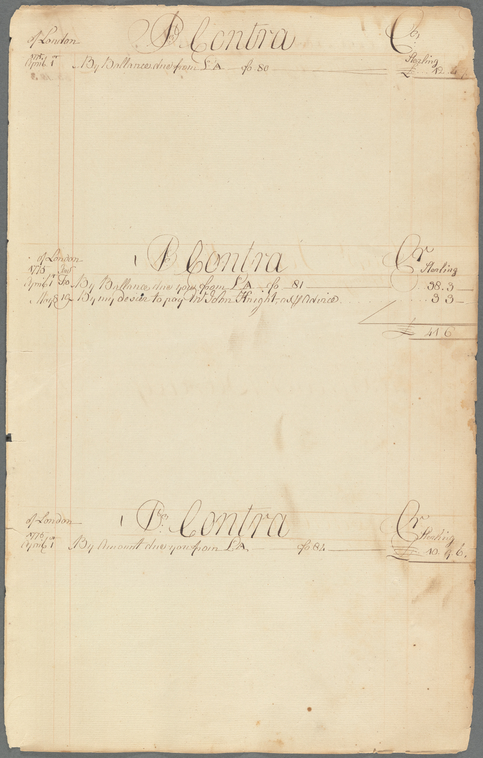 of London Pr Contra Cr
Sterling
April 1st By Ballance due from LA fo 80 £ 12. 6.
of London Pr Contra Cr
1775 Sterling
April 1st By Ballance due you from LA fo 81 38.3
By my desire to pay Mr John Knight as Advice 3 3
£ 41.6
of London Pr Contra Cr
1775 Sterling
April 1st By Amount due you from LA fo 84 £ 10.4.6.